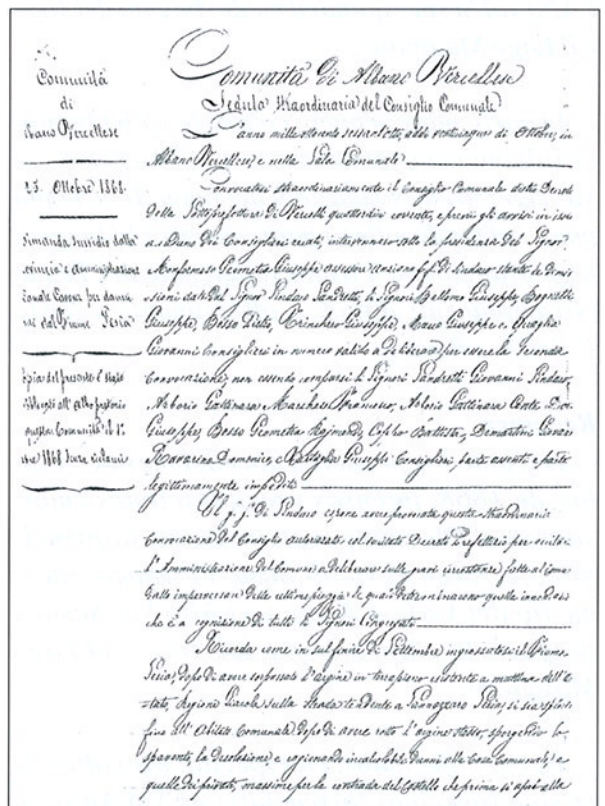 Comunità
di
Albano Vercellese
25. Ottobre 1868.
Dimanda sussidio dalla
Provincia e Amministrazione
per danni
dal Fiume Sesia
Copia del presente è stata
all'albo pretorio
questa Comunità il 1°
1868 senza richiami
Comunità di Albano Vercellese
Seduta straordinaria del Consiglio Comunale
L'anno mille ottocento sessantotto, addì venticinque di Ottobre, in
Albano Vercellese, e nella Sala Comunale
Convocatosi straordinariamente il Consiglio Comunale dietro Decreto
della Sottoprefettura di Vercelli quattordici corrente, e previi gli avvisi in iscritto
a ciaduno dei Consiglieri recati, intervennero sotto la presidenza del Signor
Monformoso Geometra Giuseppe assessore anziano ff. di Sindaco stante le dimissioni
date dal Signor Sindaco Sandrotti, li Signori Bellomo Giuseppe, Bognetti
Giuseppe, Bosso Pietro, Trinchero Giuseppe, Mauo Giuseppe e Quaglia
Giovanni Consiglieri in numero valido a deliberare per essere la seconda
Convocazione, non essendo comparsi li Signori Sandrotti Giovanni Sindaco,
Arborio Gattinara Marchese Francesco, Arborio Gattinara Conte Don
Giuseppe, Bosso Geometra Rajmondo, Battista, Demartini Giovanni
Ravarino Domenico, e Giuseppe Consiglieri parte assenti e parte
legittimamente impediti
Il ff. di Sindaco espone avere promossa questa straordinaria
Convocazione del Consiglio autorizzata col succitato Decreto Prefettizio per
l'Amministrazione del Comune a deliberare sulle gravi circostanze fatte al Comune
dalle imperversar delle ultime pioggie le quali determinarono quelle inondazioni
che è a cognizione di tutti li Signori Congregati
Ricorda come in sul finire di Settembre ingrossatosi il Fiume
Sesia, dopo di avere sorpassato l'argine in terrapieno esistente a mattina dell'
abitato, Regione sulla strada tendente a Sannazzaro Sesia, si sia spinto
fino all'abitato Comunale dopo di avere rotto l'argine stesso, spargendo lo
spavento, la desolazione, e cagionando incalcolabili danni alle Case Comunali, e
quelle dei privati, massime per la contrada del Castello che prima si aprì alla